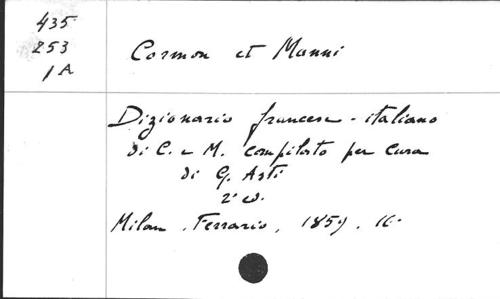 435
253
1A
Cormon et Manni
Dizionario francese-italiano
di C. e M. compilato per cura
di G. Asti
2e ed.
Milan, Ferrario, 1859, 16°